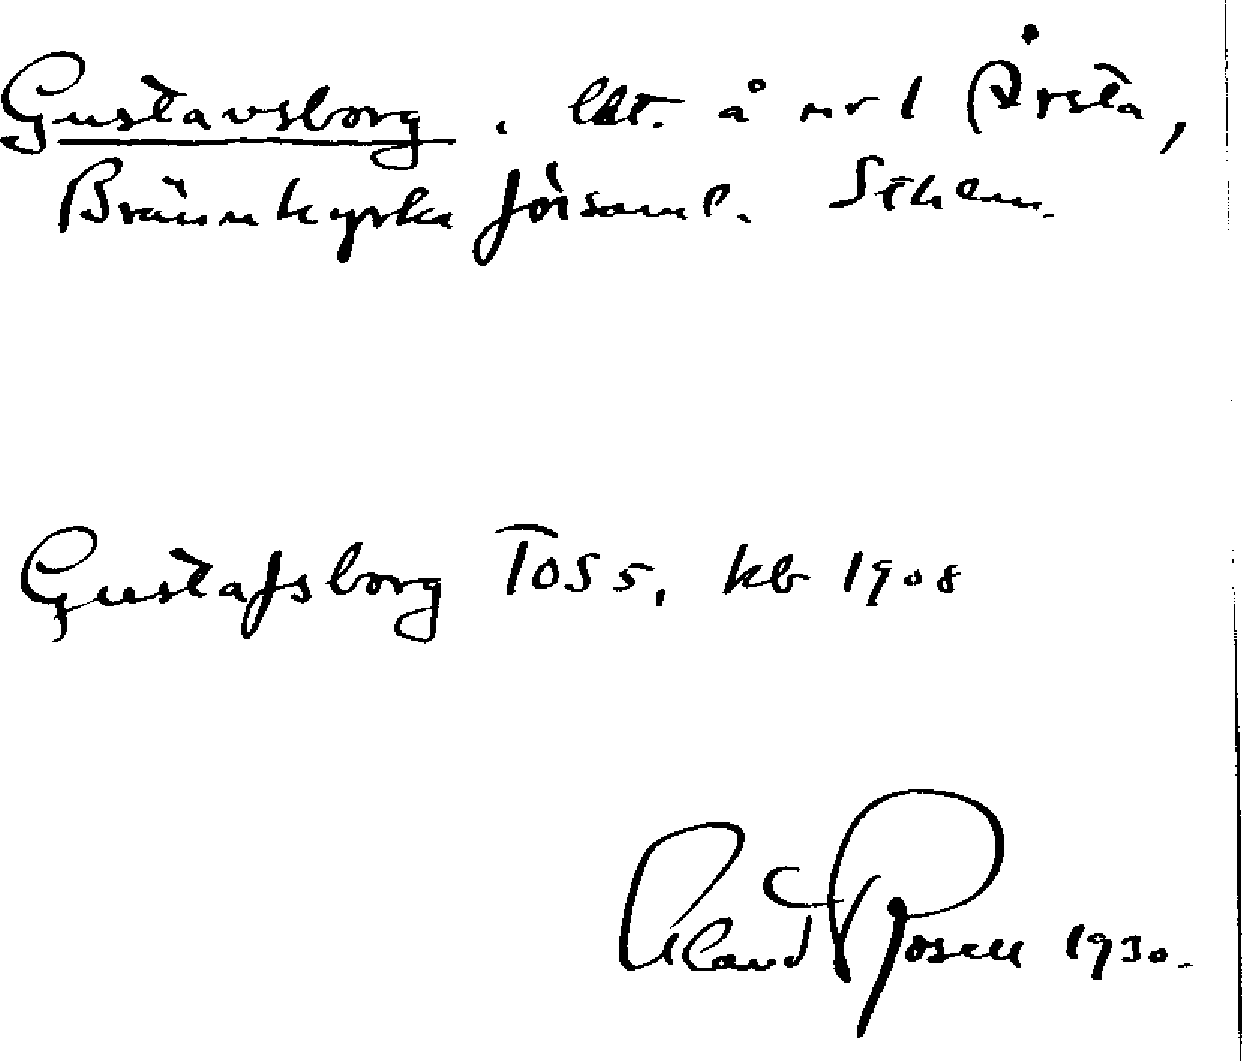 Gustavsborg, lht. å nr 1 Årsta,
Brännkyrka församl. Sthlm.
Gustafsborg TOS 5, kb 1908
Rosell 1930.